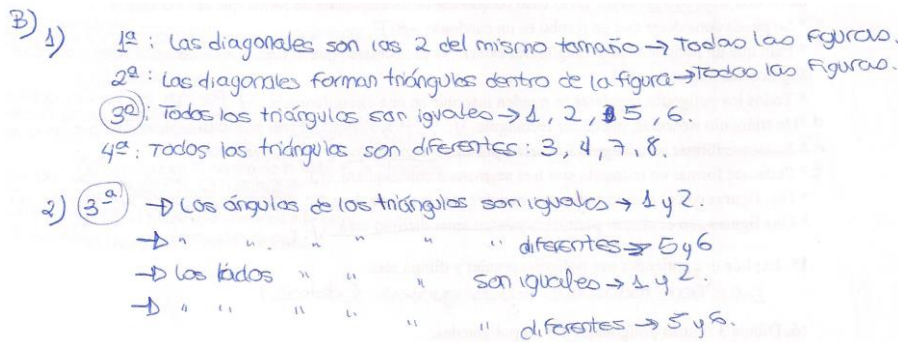 B)
1) 1ª: Las diagonales son las 2 del mismo tamaño → Todas las figuras.
2ª: Las diagonales forman triángulos dentro de la figura → Todas las figuras.
3ª: Todos los triángulos son iguales → 1, 2, 5, 6.
4ª: Todos los triángulos son diferentes: 3, 4, 7, 8.
2) 3ª → Los ángulos de los triángulos son iguales → 1 y 2.
→ " " " " " " diferentes → 5 y 6
→ Los lados " " " son iguales → 1 y 2.
→ " " " " " " diferentes → 5 y 6.